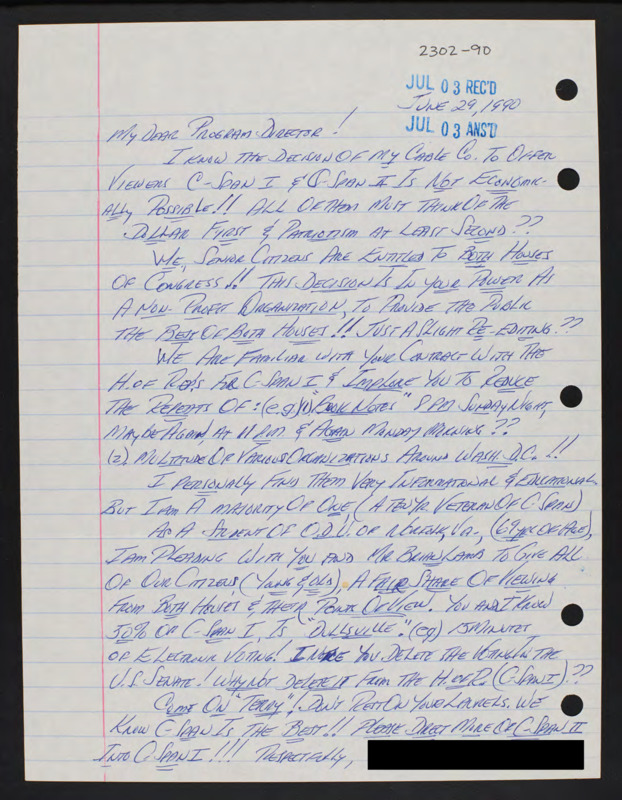 2302-90
JUL 03 REC'D
JUNE 29, 1990
JUL 03 ANS'D
MY DEAR PROGRAM-DIRECTOR!
I KNOW THE DECISION OF MY CABLE CO. TO OFFER
VIEWERS C-SPAN I & C-SPAN II IS NOT ECONOMIC-
ALLY POSSIBLE!! ALL OF THEM MUST THINK OF THE
DOLLAR FIRST & PATRIOTISM AT LEAST SECOND??
WE, SENIOR CITIZENS ARE ENTITLED TO BOTH HOUSES
OF CONGRESS!! THIS DECISION IS IN YOUR POWER AS
A NON-PROFIT ORGANIZATION, TO PROVIDE THE PUBLIC
THE BEST OF BOTH HOUSES!! JUST A SLIGHT RE-EDITING??
WE ARE FAMILIAR WITH YOUR CONTRACT WITH THE
H. OF REP'S FOR C-SPAN I & IMPLORE YOU TO REDUCE
THE REPEATS OF: (e.g.)(1) "BOOK NOTES" 8 PM SUNDAY NIGHT,
MAYBE AGAIN, AT 11 PM & AGAIN MONDAY MORNING??
(2) MULTITUDE OF VARIOUS ORGANIZATIONS AROUND WASH. D.C.!!
I PERSONALLY FIND THEM VERY INFORMATIONAL & EDUCATIONAL
BUT I AM A MAJORITY OF ONE (A TEN YR. VETERAN OF C-SPAN)
AS A STUDENT OF O.D.U. OF NORFOLK, VA., (69 YRS OF AGE),
I AM PLEADING WITH YOU AND MR. BRIAN LAMB TO GIVE ALL
OF OUR CITIZENS (YOUNG & OLD), A FAIR SHARE OF VIEWING
FROM BOTH HOUSES & THEIR POINTS OF VIEW. YOU AND I KNOW
50% OF C-SPAN I, IS "DULLSVILLE". (eg) 15 MINUTES
OF ELECTRONIC VOTING! I NOTE YOU DELETE THE VOTING IN THE
U.S. SENATE! WHY NOT DELETE IT FROM THE H. OF R. (C-SPAN I)??
COME ON "TERRY"! DON'T REST ON YOUR LAURELS. WE
KNOW C-SPAN IS THE BEST!! PLEASE DIRECT MORE OF C-SPAN II
INTO C-SPAN I!!! RESPECTFULLY,